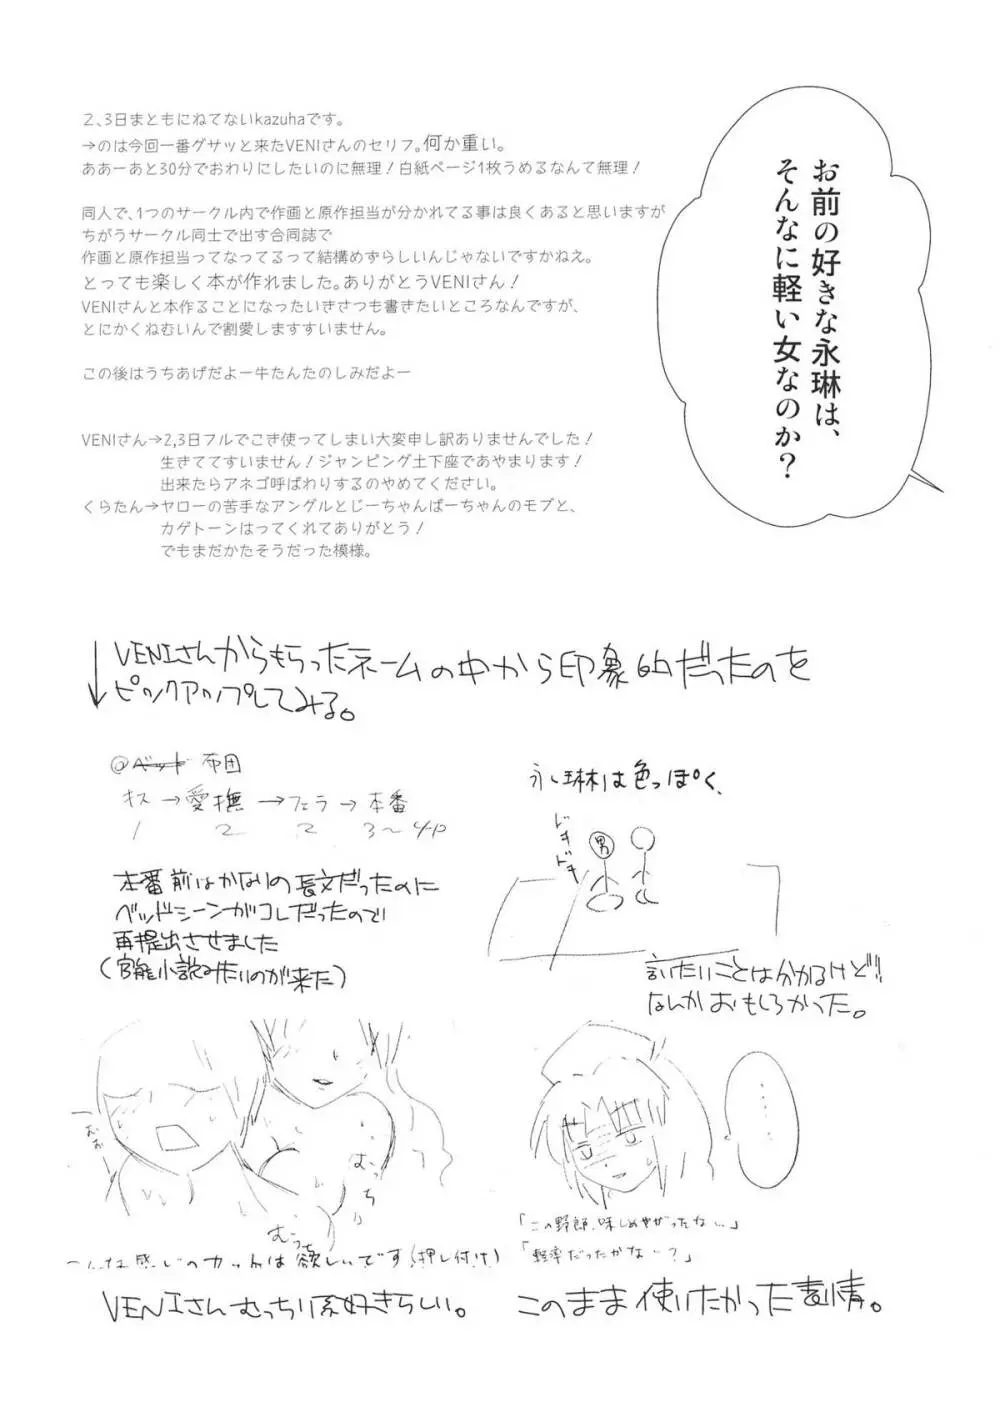 お前の好きな永琳は、
そんなに軽い女なのか？
2、3日まともにねてないkazuhaです。
→のは今回一番グサッと来たVENIさんのセリフ。何か重い。
ああーあと30分でおわりにしたいのに無理！白紙ページ1枚うめるなんて無理！
同人で、1つのサークル内で作画と原作担当が分かれてる事は良くあると思いますが
ちがうサークル同士で出す合同誌で
作画と原作担当ってなってるって結構めずらしいんじゃないですかねえ。
とっても楽しく本が作れました。ありがとうVENIさん！
VENIさんと本作ることになったいきさつも書きたいところなんですが、
とにかくねむいんで割愛しますすいません。
この後はうちあげだよー牛たんたのしみだよー
VENIさん→2,3日フルでこき使ってしまい大変申し訳ありませんでした！
生きててすいません！ジャンピング土下座であやまります！
出来たらアネゴ呼ばわりするのやめてください。
くらたん→ヤローの苦手なアングルとじーちゃんばーちゃんのモブと、
カゲトーンはってくれてありがとう！
でもまだかたそうだった模様。
↓VENIさんからもらったネームの中から印象的だったのを
ピックアップしてみる。
@ベット 布団
キス→愛撫→フェラ→本番
1 2 2 3〜4P
本番前はかなりの長文だったのに
ベッドシーンがコレだったので
再提出させました
(官能小説みたいのが来た)
永琳は色っぽく、
ドキドキ
男
言いたいことは分かるけど!!
なんかおもしろかった。
むぉぉ
むっちり
むっち
こんな感じのカットは欲しいです(押し付け)
VENIさんむっちり系好きらしい。
……
「この野郎、味しめやがったな…」
「軽率だったかな…？」
このまま使いたかった表情。